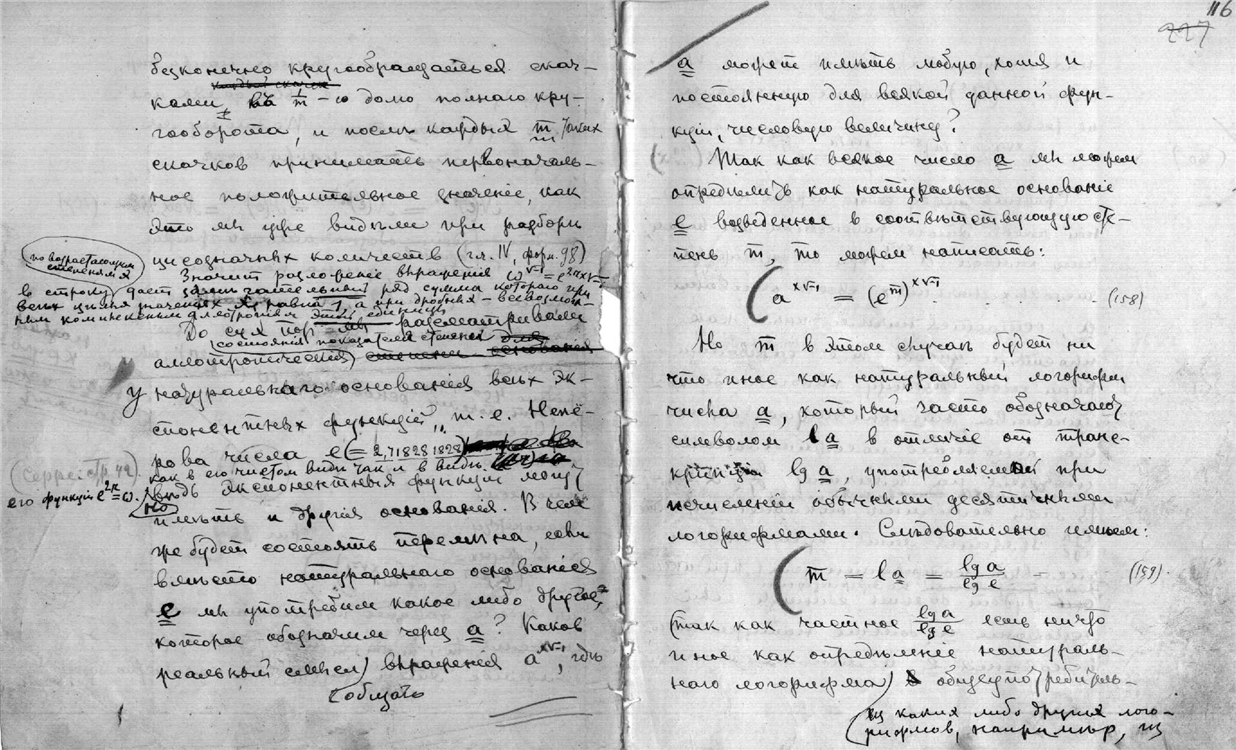 безконечно кругообращаться скач-
ками, въ 1/m -ю долю полнаго кру-
гооборота, и послѣ каждых m таких
скачков принимать первоначаль-
ное положительное значеніе, как
это мы уже видѣли при разборѣ
цисозначных количеств (гл. IV, форм. 98)
по возрастающим
степеням я
Значит разложеніе выраженія ω^√-1 = e^2πx√-1
в строку дает замѣчательный ряд сумма котораго при
всѣх цѣлых значеніях x равна 1, а при дробных – всевозмож-
ным комплексным аллотропіям этой единицы
До сих пор мы разсматривали
состоянія показателя степени для
аллотропическія
у натуральнаго основанія всѣх эк-
спонентных функцій, т. е. Непе-
рова числа e (= 2,718281828)
(Серре стр. 42)
как в его чистом видѣ так и в видѣ
его функціи e^2π = ω. Но
вѣдь экспонентныя функціи могут
имѣть и другія основанія. В чем
же будет состоять перемѣна, если
вмѣсто натуральнаго основанія
e мы употребим какое либо другое,
которое обозначим через a? Каков
реальный смысл выраженія a^x√-1, гдѣ
общаго
116
227
a может имѣть любую, хотя и
постоянную для всякой данной фун-
кціи, числовую величину?
Так как всякое число a мы можем
опредѣлить как натуральное основаніе
e возведенное в соотвѣтствующую сте-
пень m, то можем написать:
a^x√-1 = (e^m)^x√-1 - (158)
Но m в этом случаѣ будет ни
что иное как натуральный логарифм
числа a, который часто обозначают
символом la в отличіе от тран-
скрипціи lg a, употребляемой при
исчисленіи обычными десятичными
логарифмами. Слѣдовательно имѣем:
m = la = lg a / lg e - (159)
(так как частное lg a / lg e есть ничто
иное как опредѣленіе натураль-
наго логарифма) общеупотребитель-
из каких либо других лога-
рифмов, например, из